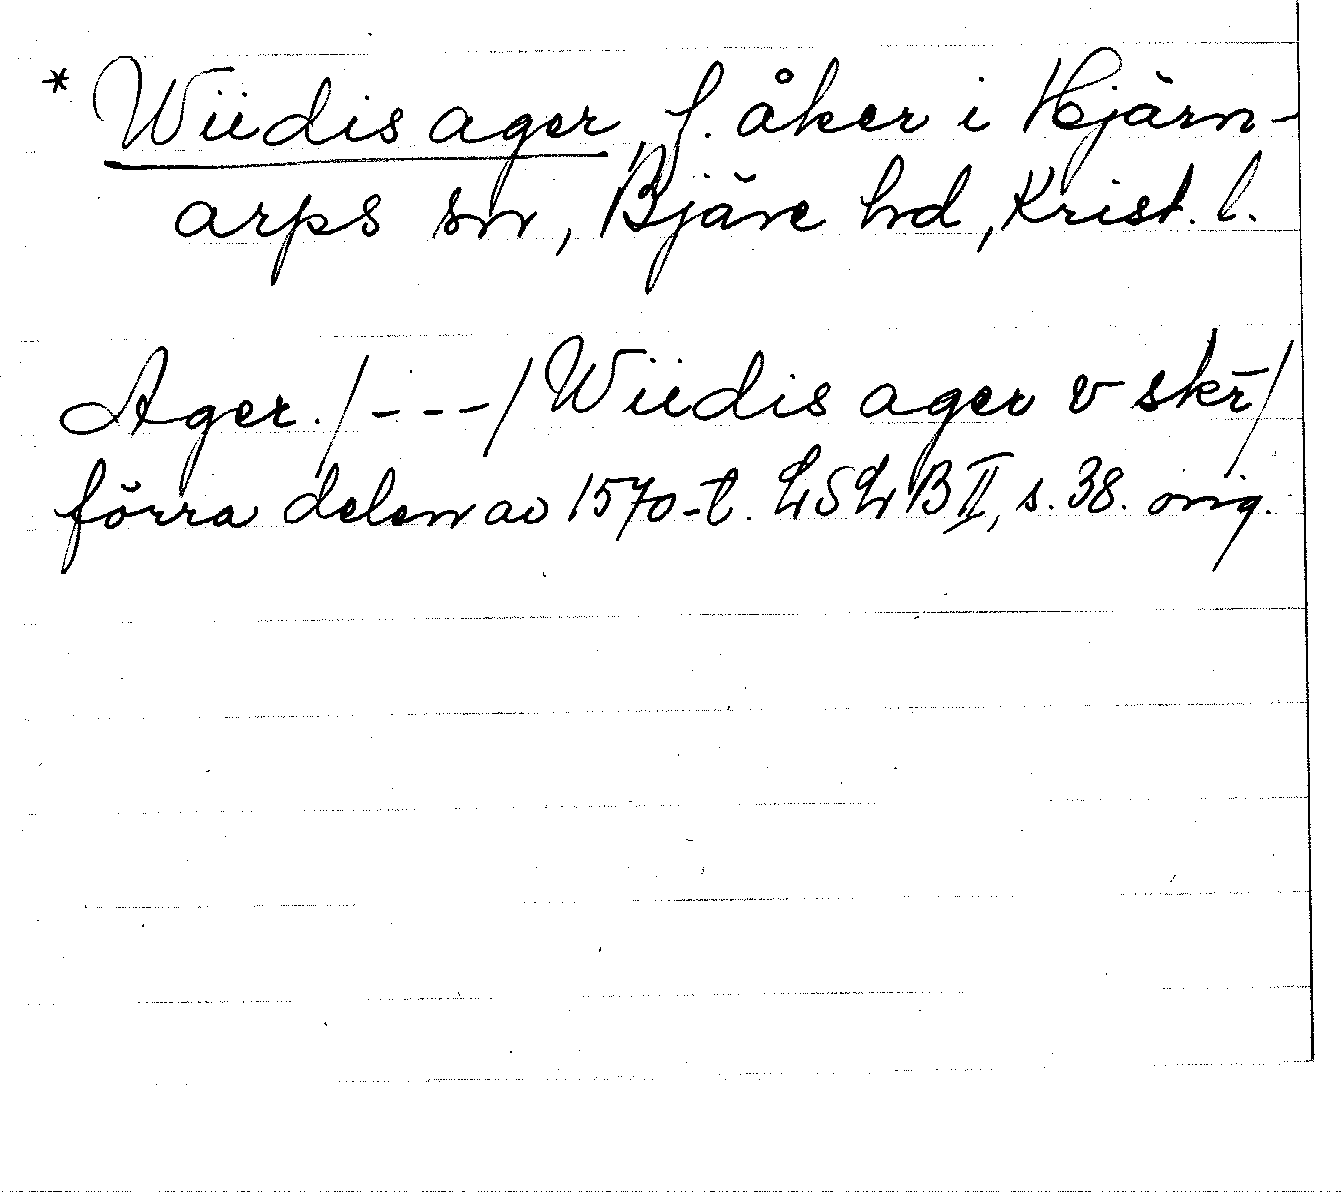 * Wiidis ager, f. åker i Hjärn-
arps sn, Bjäre hd, Krist. l.
Ager. /---/ Wiidis ager v skr̄/
förra delen av 1570-t. LSLB II, s. 38. orig.